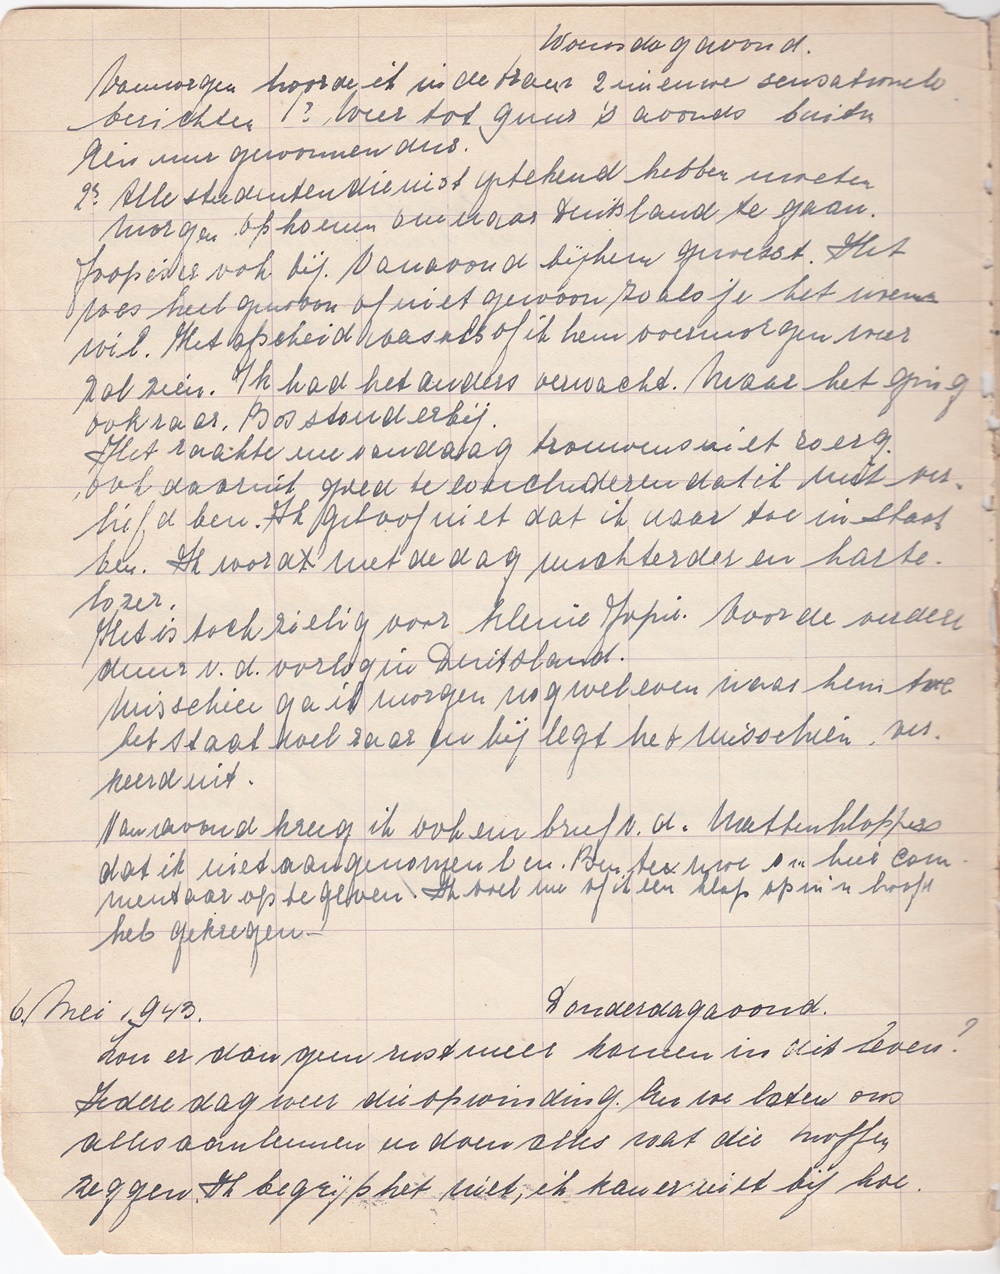 Woensdagavond.
Vanmorgen hoorde ik in de traun 2 nieuwe sensationele
berichten 1? Weer tot 9 uur 's avonds buiten
Een uur gewonnen dus.
2e Alle studenten die niet getekend hebben moeten
morgen opkomen om naar Duitsland te gaan.
Joop is er ook bij. Vanavond bij hem geweest. Het
was heel gewoon of niet gewoon zoals je het noemen
wil. Het afscheid was alsof ik hem overmorgen weer
zal zien. Ik had het anders verwacht. Maar het ging
ook raar. Bos stond erbij.
Het raakte me vandaag trouwens niet zo erg.
ook daaruit goed te concluderen dat ik niet ver-
liefd ben. Ik geloof niet dat ik daar toe in staat
ben. Ik wordt met de dag nuchterder en harte-
lozer.
Het is toch zielig voor kleine Jopie. Voor de verdere
duur v.d. oorlog in Duitsland.
Misschien ga ik morgen nog wel even naar hem toe
het staat wel raar en hij legt het misschien ver-
keerd uit.
Vanavond kreeg ik ook een brief v.d. Mattenkloppers
dat ik niet aangenomen ben. Ben te moe om hier com-
mentaar op te geven. Ik voel me of ik een klap op m'n hoofd
heb gekregen—
6 Mei 1943. Donderdagavond.
Zou er dan geen rust meer komen in dit leven?
Iedere dag weer die opwinding. En we laten ons
alles aanleunen en doen alles wat die moffen
zeggen. Ik begrijp het niet, ik kan er niet bij hoe.